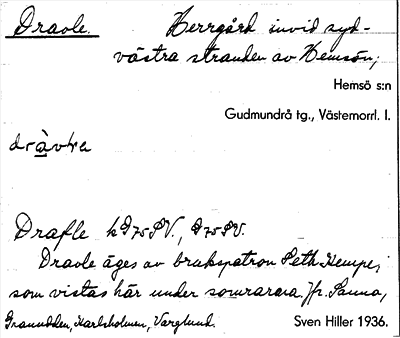 Dravle. Herrgård invid syd-
västra stranden av Hemsön;
Hemsö s:n
Gudmundrå tg., Västernorrl. l.
Drafle
Dravle äges av brukspatron Seth Kempe,
som vistas här under somrarna. Jfr. Sanna,
Granudden, Karlsholmen, Varglund.
Sven Hiller 1936.